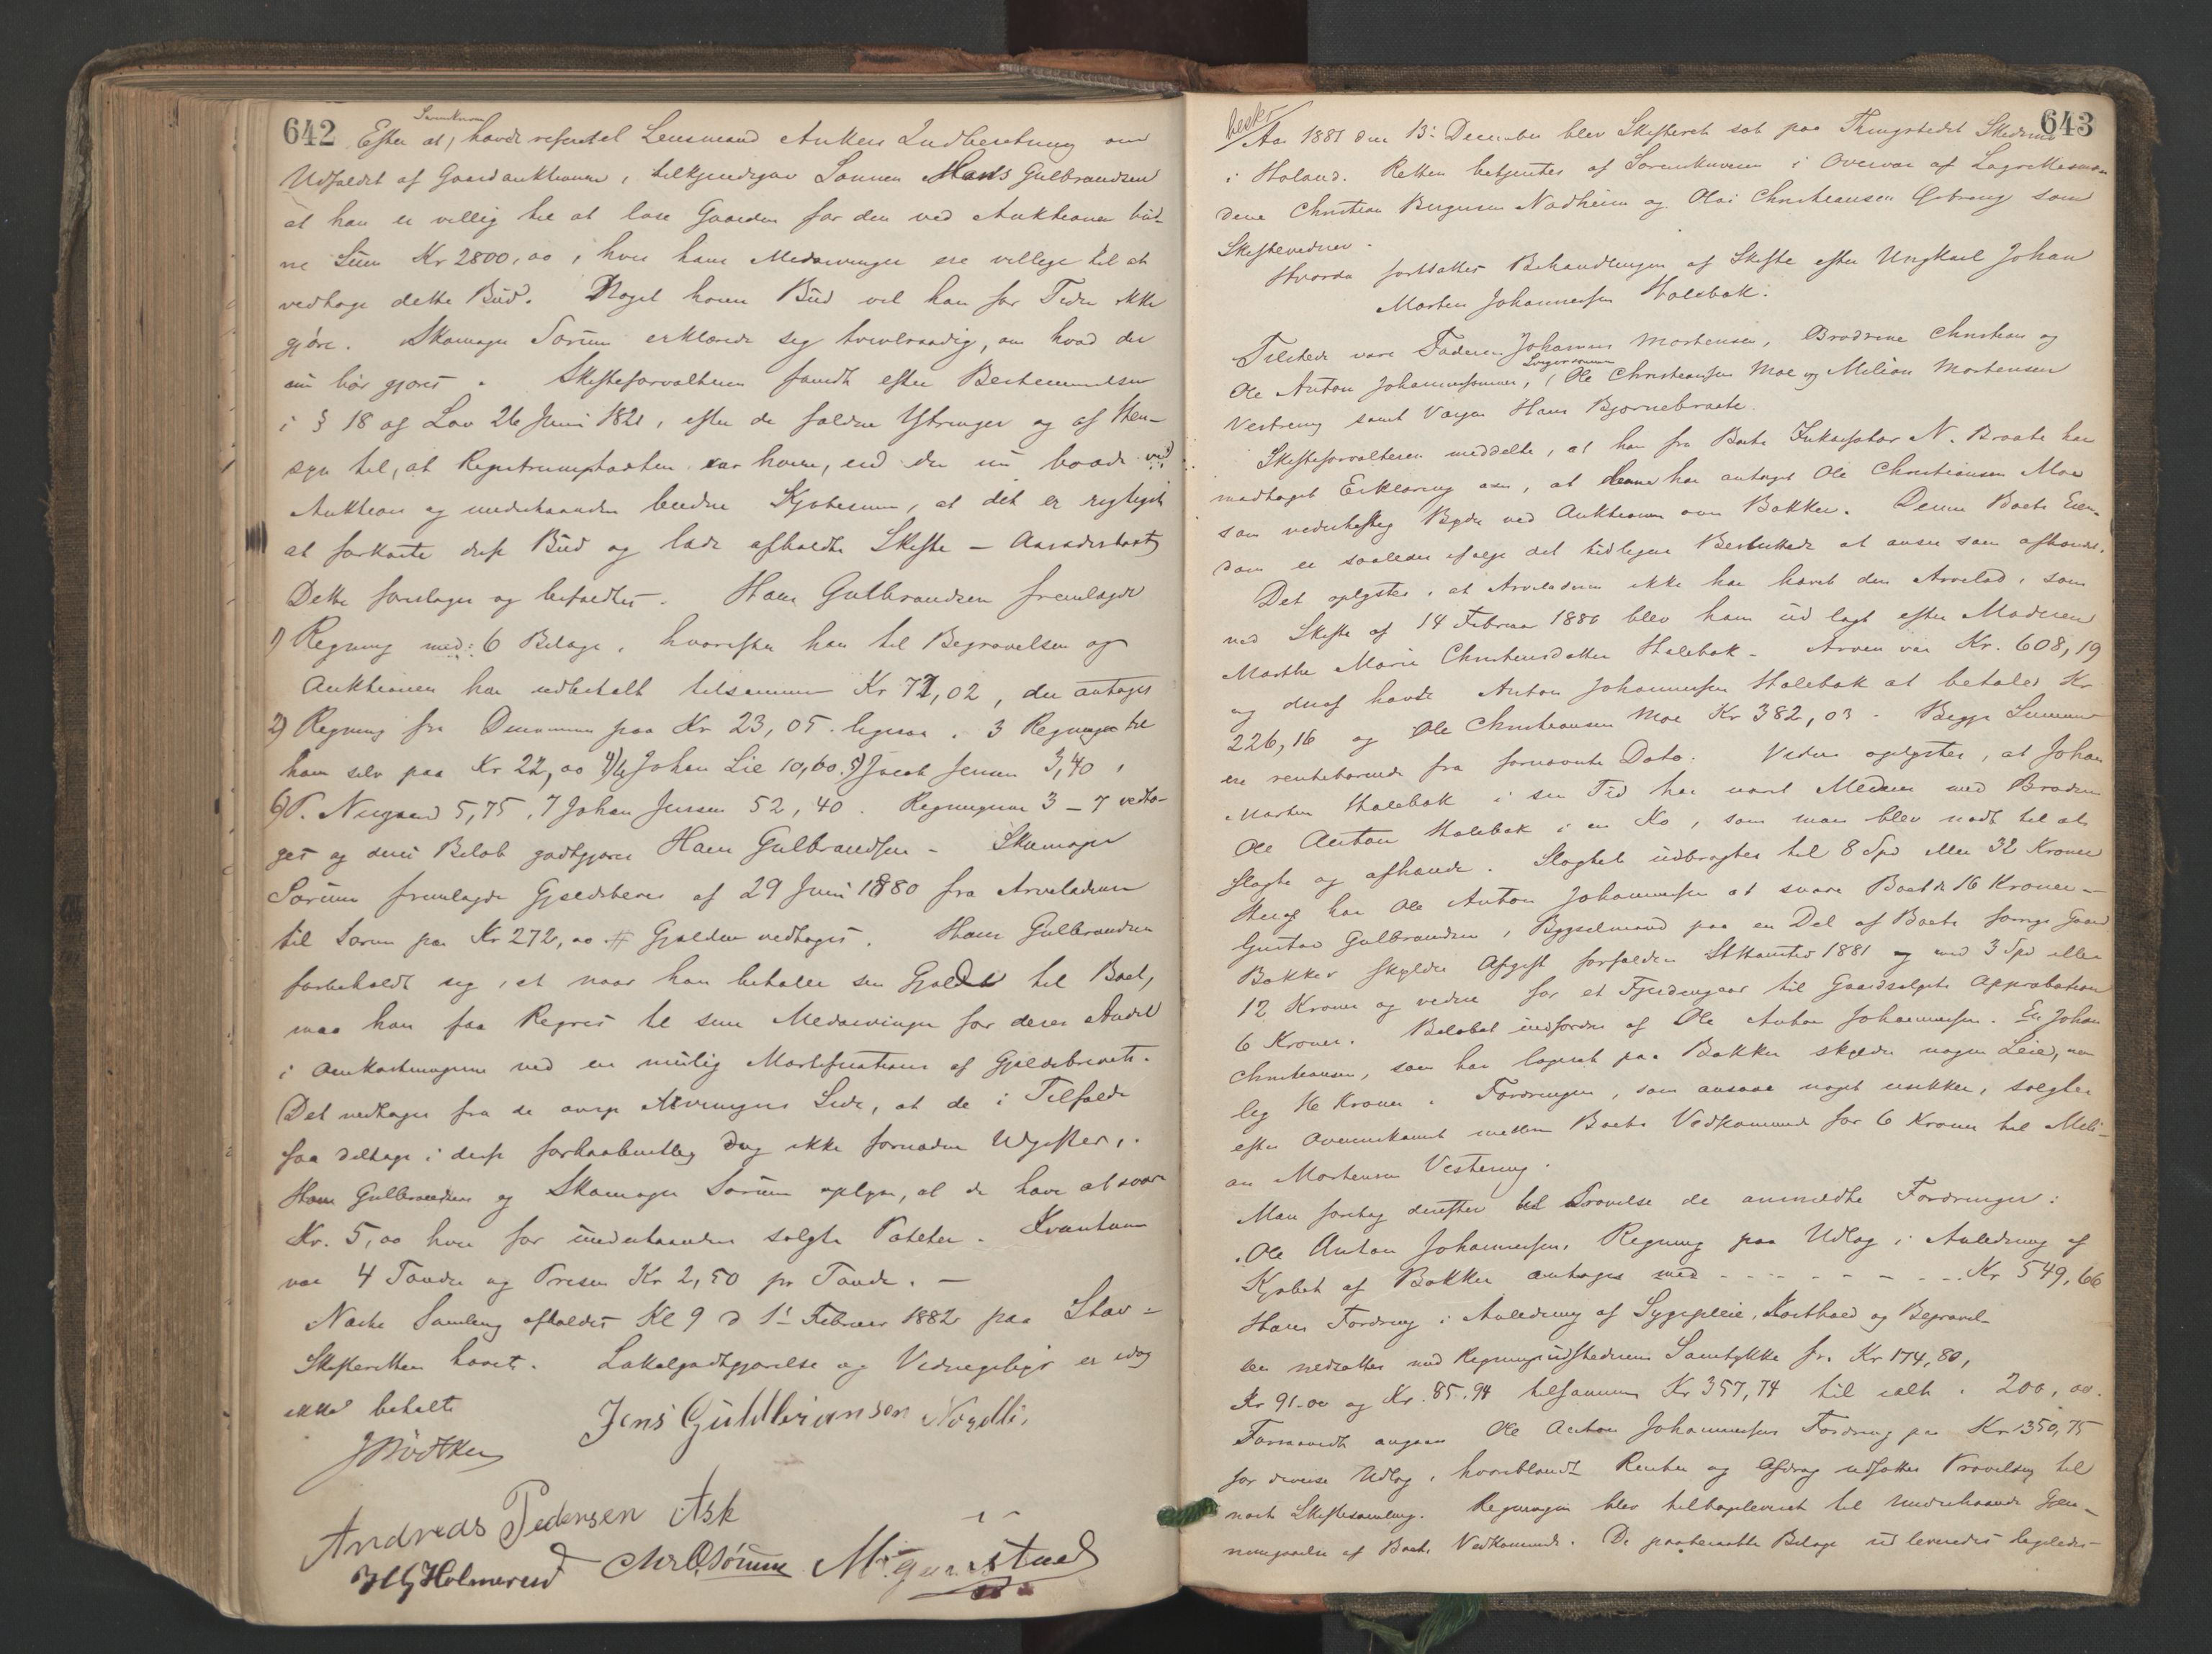 642
Sorenskriveren
Efter at, havde refereret Lensmand Ankers Indberetning om
Udfaldet af Gaardauktionen, tilkjendegav Sønnen Hans Gulbrandsen
at han er villig til at løse Gaarden for den ved Auktionen bud-
ne Sum Kr 2800,00, hvis hans Medarvinger ere villige til at
vedtage dette Bud. Noget høiere Bud vil han for Tiden ikke
gjøre. Skomager Sørum erklærede sig tvivlraadig, om hvad der
nu bør gjøres. Skifteforvalteren fandt efter Bestemmelsen
i § 18 af Lov 26 Juni 1821, efter de faldne Ytringer og af Hen-
syn til, at Registreringstaxten var høiere, end den nu baade ved
Auktion og underhaanden budne Kjøbesum, at det er rigtigst
at forkaste disse Bud og lade afholdte Skifte – Aasædestaxt
Dette foretages og befordres. Hans Gulbrandsen fremlagde
1) Regning med 6 Bilage, hvorefter han til Begravelsen og
Auktionen har udbetalt tilsammen Kr 72,02, der antages
2) Regning fra Densamme paa Kr 23,05. ligesaa. 3 Regninger til
ham selv paa Kr 22,00 4) Johan Lie 10,60. 5) Jacob Jensen 3,40,
6) P. Nygaard 5,75, 7 Johan Jensen 52,40. Regningerne 3–7 vedta-
ges og deres Beløb godtgjøres Hans Gulbrandsen – Skomager
Sørum fremlagde Gjeldsbevis af 29 Juni 1880 fra Arveladeren
til Sørum paa Kr 272,00 Gjælden vedtages. Hans Gulbrandsen
forbeholdt sig, at naar han betaler sin Gjæld til Boet,
maa han faa Regres til sine Medarvinger for deres Andel
i Omkostningerne ved en mulig Mortifikation af Gjeldsbrevet.
Det vedtages fra de øvrige Arvingers Side, at de i Tilfælde
faa deltage i disse forhaabentlig dog ikke fornødne Udgifter.
Hans Gulbrandsen og Skomager Sørum oplyse, at de have at svare
Kr. 5,00 hver for underhaanden solgte Poteter. Kvantum
var 4 Tønder og Prisen Kr 2,50 pr Tønde. –
Næste Samling afholdes Kl 9 d 1ste Februar 1882 paa Stav-
Skifteretten hævet. Lokalgodtgjørelse og Vidnegebyr er idag
ikke betalt
JBødtker Jens Guldbransen Nordli.
Andreas Pedersen Ask
Chr. O. Sørum
643
beskr
Aar 1881 den 13de December blev Skifteret sat paa Thingstedet
i Høland. Retten betjentes af Sorenskriveren i Overvær af Lagrettesmæn-
dene Christian Nadheim og Olai Christiansen som
Skiftevidner.
Hvorda fortsattes Behandlingen af Skifte efter Ungkarl Johan
Morten Johannessen Holebak.
Tilstede vare Faderen Johannes Mortensen, Brødrene Christian og
Svogersønnen
Ole Anton Johannessønner, Ole Christiansen Moe og Milian Mortensen
Vestreng samt Værgen Hans Bjørnebraate.
Skifteforvalteren meddelte, at han fra Boets Inkassator N. Braate har
modtaget Erklæring om, at denne har antaget Ole Christiansen Moe
som vederheftig Byder ved Auktionen over Bakken. Denne Boets Eien-
dom er saaledes ifølge det tidligere Besluttede at anse som afhændet.
Det oplystes, at Arveladeren ikke har hævet den Arvelod, som
ved Skifte af 14 Februar 1880 blev ham udlagt efter Moderen
Marthe Marie Christensdatter Holebak. Arven var Kr. 608,19
og deraf havde Anton Johannessen Holebak at betale Kr
226,16 og Ole Christiansen Moe Kr 382,03. Begge Summer
ere rentebærende fra fornævnte Dato. Videre oplystes, at Johan
Morten Holebak i sin Tid har været Medeier med Broderen
Ole Anton Holebak i en Ko, som man blev nødt til at
slagte og afhænde. Slagtet udbragtes til 8 Spd eller 32 Kroner
Heraf har Ole Anton Johannessen at svare Boet de 16 Kroner –
Gustav Gulbrandsen, Bygselmand paa en Del af Boets forrige Gaard
Bakken skylder Afgift forfalden St Hanstid 1881 med 3 Spd eller
12 Kroner og videre for et Fjerdingaar til Gaardsalgets Approbation
6 Kroner. Beløbet indfordres af Ole Anton Johannessen. En Johan
Christiansen, som har logeret paa Bakken skylder nogen Leie, nem-
lig 16 Kroner. Fordringen, som ansaaes noget usikker, solgtes
efter Overenskomst mellem Boets Vedkommende for 6 Kroner til Mili-
an Mortensen Vestreng.
Man foretog derefter til Prøvelse de anmeldte Fordringer:
Ole Anton Johannessens Regning paa Udlæg i Anledning af
Kjøbet af Bakken antages med - - - - - - - Kr 549,66
Hans Fordring i Anledning af Sygepleie, Kosthold og Begravel-
sen nedsattes med Regningsudstederens Samtykke fra Kr 174,80,
Kr 91.00 og Kr. 85.94 tilsammen Kr 357,74 til ialt . 200,00.
Forsaavidt angaar Ole Anton Johannessens Fordring paa Kr 350,75
for diverse Udlæg, hvoriblandt Renter og Afdrag udsattes Prøvelsen til
næste Skiftesamling. Regningen blev tilbageleveret til underhaands Gjen-
nemgaaelse af Boets Vedkommende. De paaberaabte Bilage udleveredes ligeledes